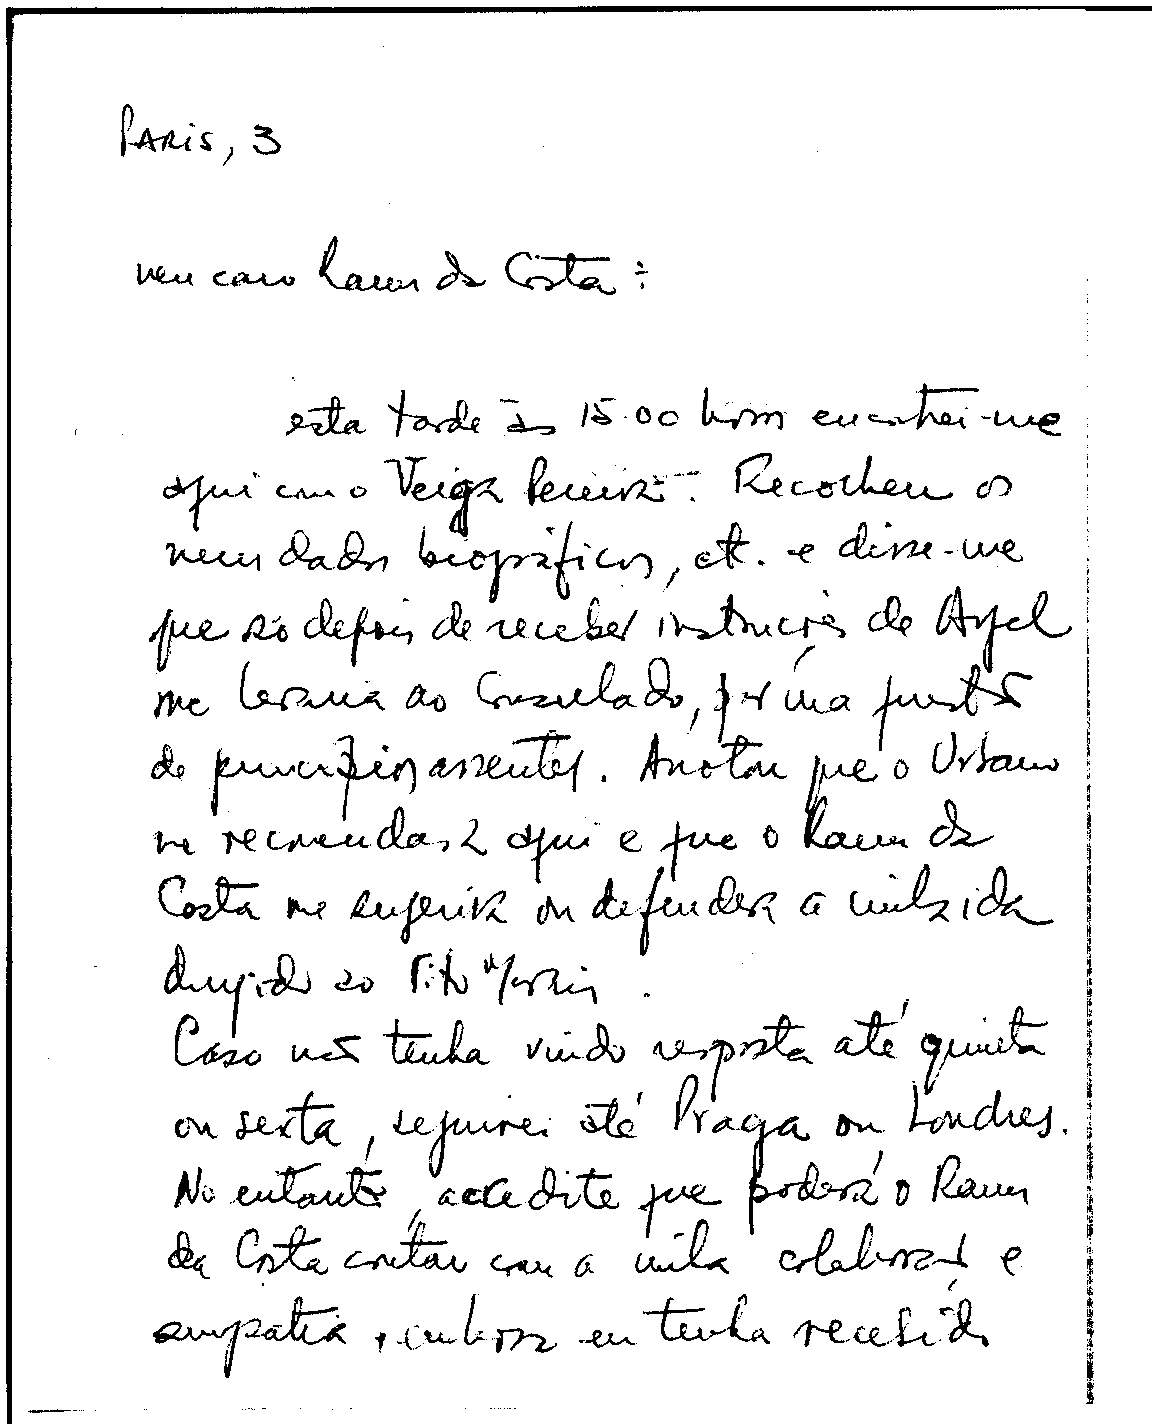 PARIS, 3
meu caro Ramos da Costa:
esta tarde às 15.00 horas encontrei-me
aqui com o Veiga Pereira. Recolheu os
meus dados biográficos, etc. e disse-me
que só depois de receber instruções de Argel
me levaria ao Consulado, por uma questão
de princípios assentes. Anotou que o Urbano
me recomendara aqui e que o Ramos da
Costa me sugerira ou defendera a minha ida
dirigido ao Tito Morais.
Caso não tenha vindo resposta até quinta
ou sexta, seguirei até Praga ou Londres.
No entanto, acredite que poderá o Ramos
da Costa contar com a minha colaboração e
simpatia, embora eu tenha recebido